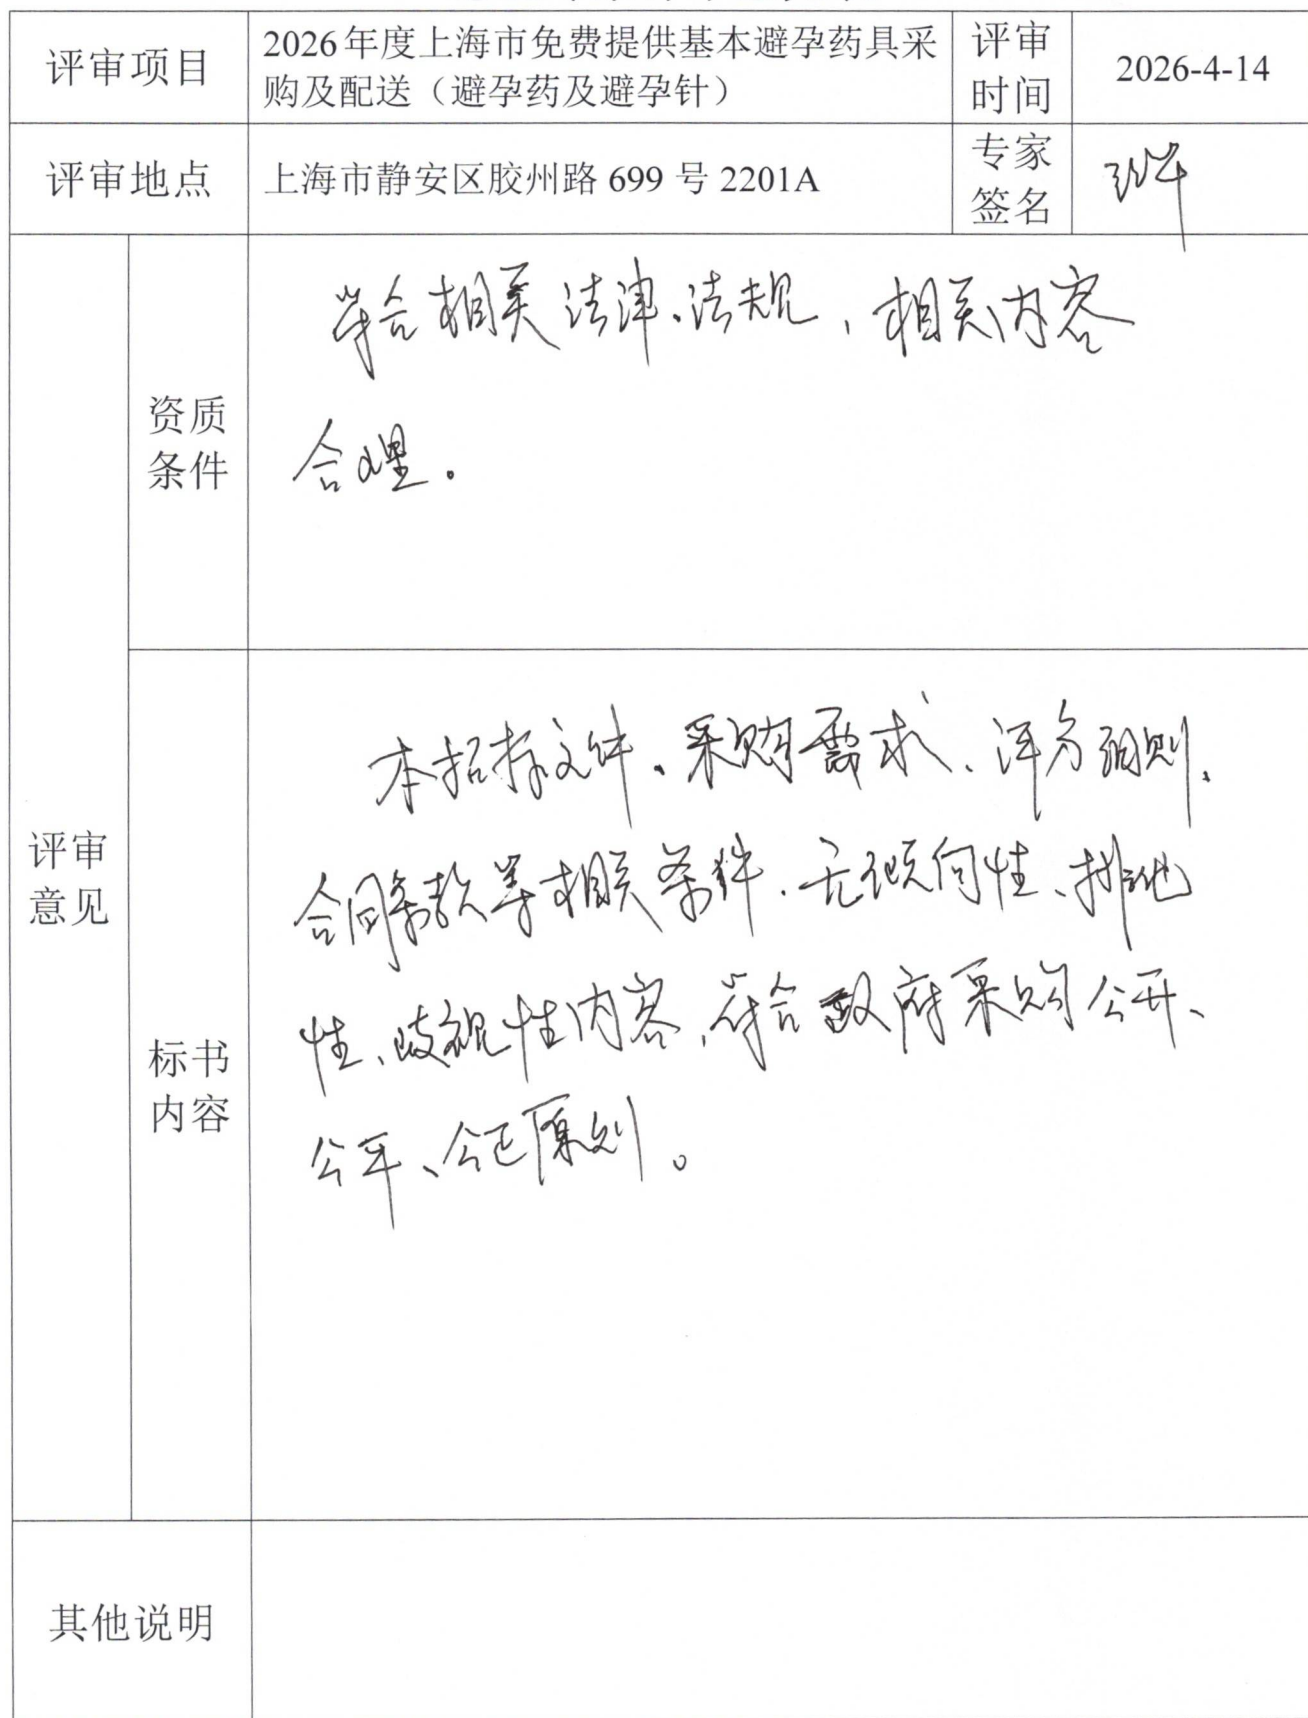 评审项目
2026年度上海市免费提供基本避孕药具采
购及配送（避孕药及避孕针）
评审
时间
2026-4-14
评审地点
上海市静安区胶州路 699 号 2201A
专家
签名
评审
意见
资质
条件
符合相关法律、法规，相关内容
合理。
标书
内容
本招标文件、采购需求、评分细则、
合同条款等相关条件，无倾向性、排他
性、歧视性内容，符合政府采购公开、
公平、公正原则。
其他说明